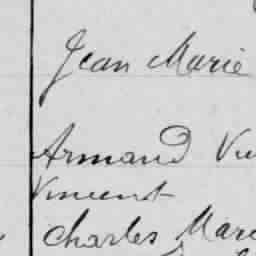 Jean Marie
Armand
Vincent
Charles